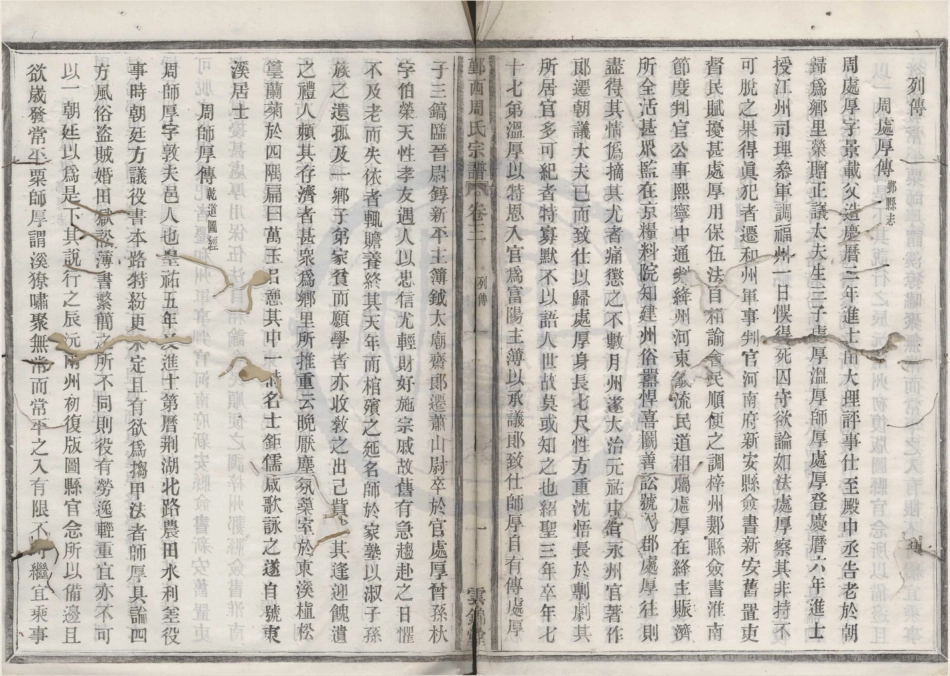 列傳
周處厚傳 鄞縣志
周處厚字景載父造慶曆二年進士由大理評事仕至殿中丞告老於朝
歸爲鄉里榮贈正議大夫生三子處厚溫厚師厚處厚登慶曆六年進士
授江州司理叅軍調福州一日悞得死囚守欲論如法處厚察其非持不
可脫之果得眞犯者遷和州軍事判官河南府新安縣僉書新安舊置吏
督民賦擾甚處厚用保伍法自相諭會民順便之調梓州郪縣僉書淮南
節度判官公事熙寧中通絳州河東流民道相屬處厚在絳主賑濟
所全活甚眾監在京糧料院知建州俗嚚悍喜鬬善訟號郡處厚往則
盡得其情僞摘其尤者痛懲之不數月州遂大治元祐中永州官著作
郎遷朝議大夫已而致仕以歸處厚身長七尺性方重沈悟長於剸劇其
所居官多可紀者特寡默不以語人世故莫或知之也紹聖三年卒年七
十七第溫厚以特恩入官爲富陽主簿以承議郎致仕師厚自有傳處厚
鄞西周氏宗譜 卷三 列傳 一 雲錦堂
子三鍋臨晉尉錞新平主簿鉞太廟齋郎遷蕭山尉卒於官處厚晉孫秋
字伯榮天性孝友遇人以忠信尤輕財好施宗戚故舊有急趨赴之日懼
不及老而失依者輒贍養終其天年而棺殯之延名師於家塾以淑子孫
族之遺孤及一鄉子弟家貧而願學者亦收敎之出己貲其逢迎餽遺
之禮人賴其存濟者甚衆爲鄉里所推重云晚厭塵氛藥室於東溪植松
篁蘭菊於四隅扁曰萬玉憩其中一時名士鉅儒咸歌詠之遂自號東
溪居士
周師厚傳 乾道圖經
周師厚字敦夫邑人也皇祐五年進士第曆荆湖北路農田水利差役
事時朝廷方議役書本路特紛更未定且有欲爲搊甲法者師厚具論四
方風俗盜賊婚田獄訟薄書繁簡之所不同則役有勞逸輕重宜亦不可
以一朝廷以爲是下其說行之辰沅兩州初復版圖縣官念所以備邊且
欲歲發常平粟師厚謂溪獠嘯聚無常而常平之入有限不繼宜乘事